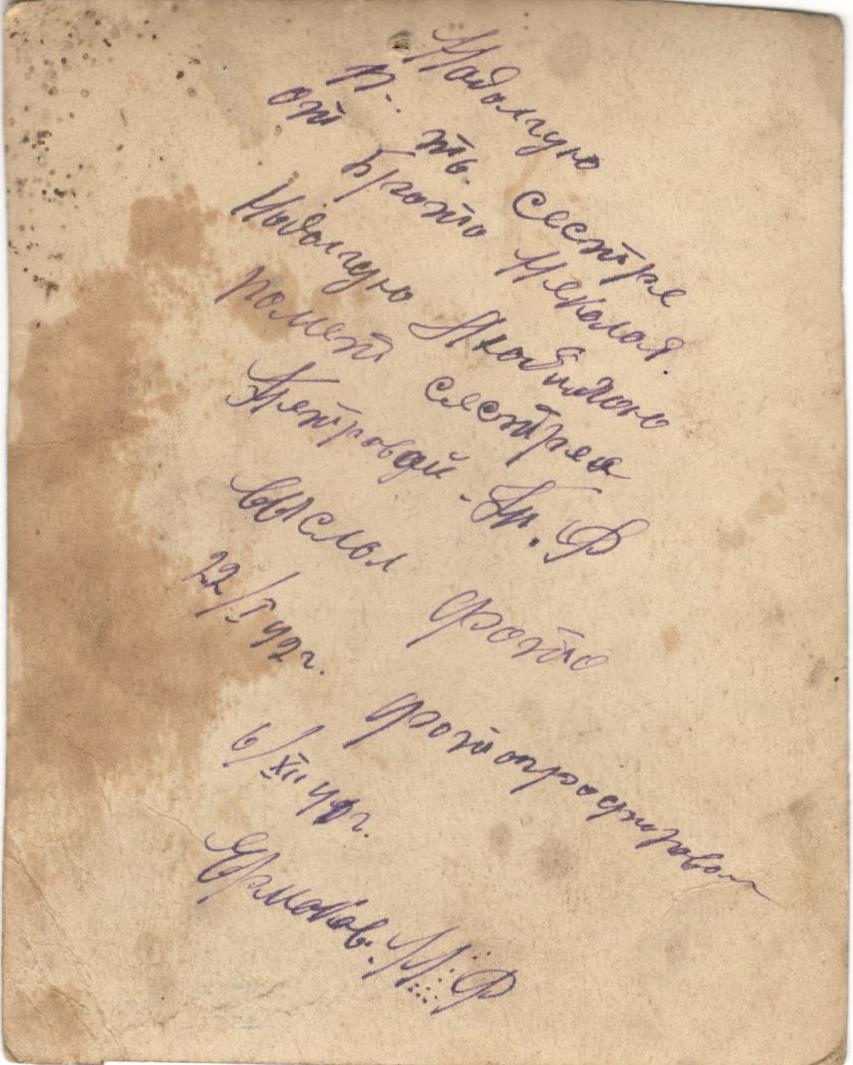 Надолгую
п-ть. сестре
от Брата Неколая.
Надолгую Любимою
помет сестреа
Петровой - Ан. Ф
выслал фото
22/I 42г. фотопрофировал
6/XII 41г.
Ермаков. Н. Ф